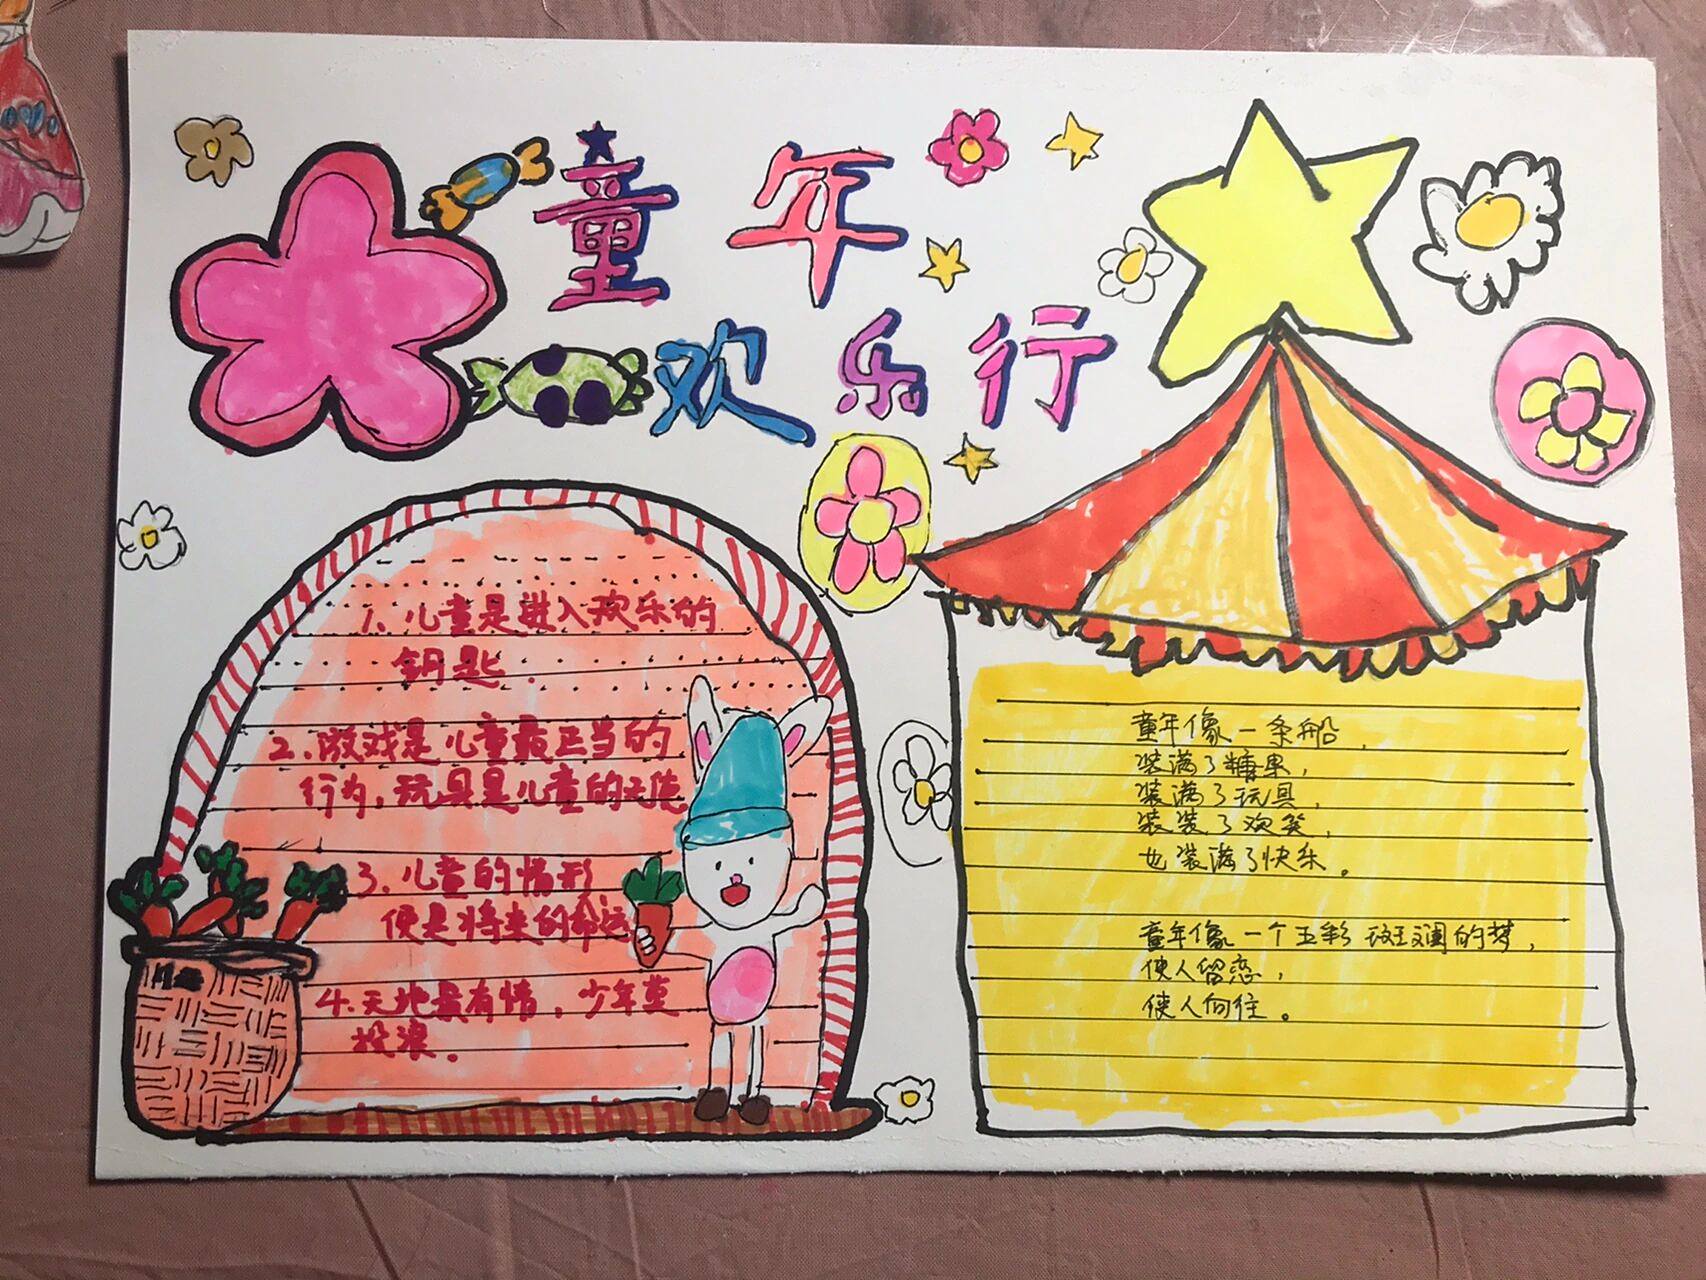 童年
欢乐行
1、儿童是进入欢乐的
钥匙.
2.游戏是儿童最正当的
行为,玩具是儿童的天使
3、儿童的情形
便是将来的命运
4.天地最有情,少年莫
投浪.
童年像一条船,
装满了糖果,
装满了玩具,
装装了欢笑,
也装满了快乐。
童年像一个五彩斑斓的梦,
使人留恋,
使人向往。